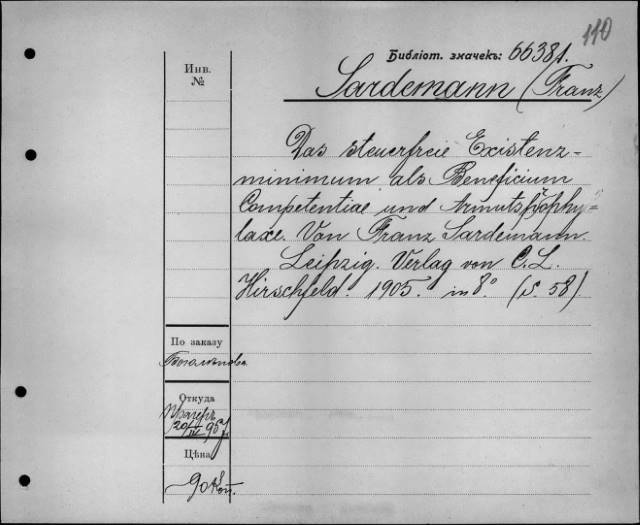 110
Библіот. значекъ: 66381.
Инв.
№
Sardemann (Franz)
Das steuerfreie Existenz-
minimum als Beneficium
Competentiae und Armutsprophy-
laxe. Von Franz Sardemann.
Leipzig. Verlag von C. L.
Hirschfeld. 1905. in 8° (S. 58)
По заказу
Откуда
20/IV 905 г.
Цѣна
90 коп.